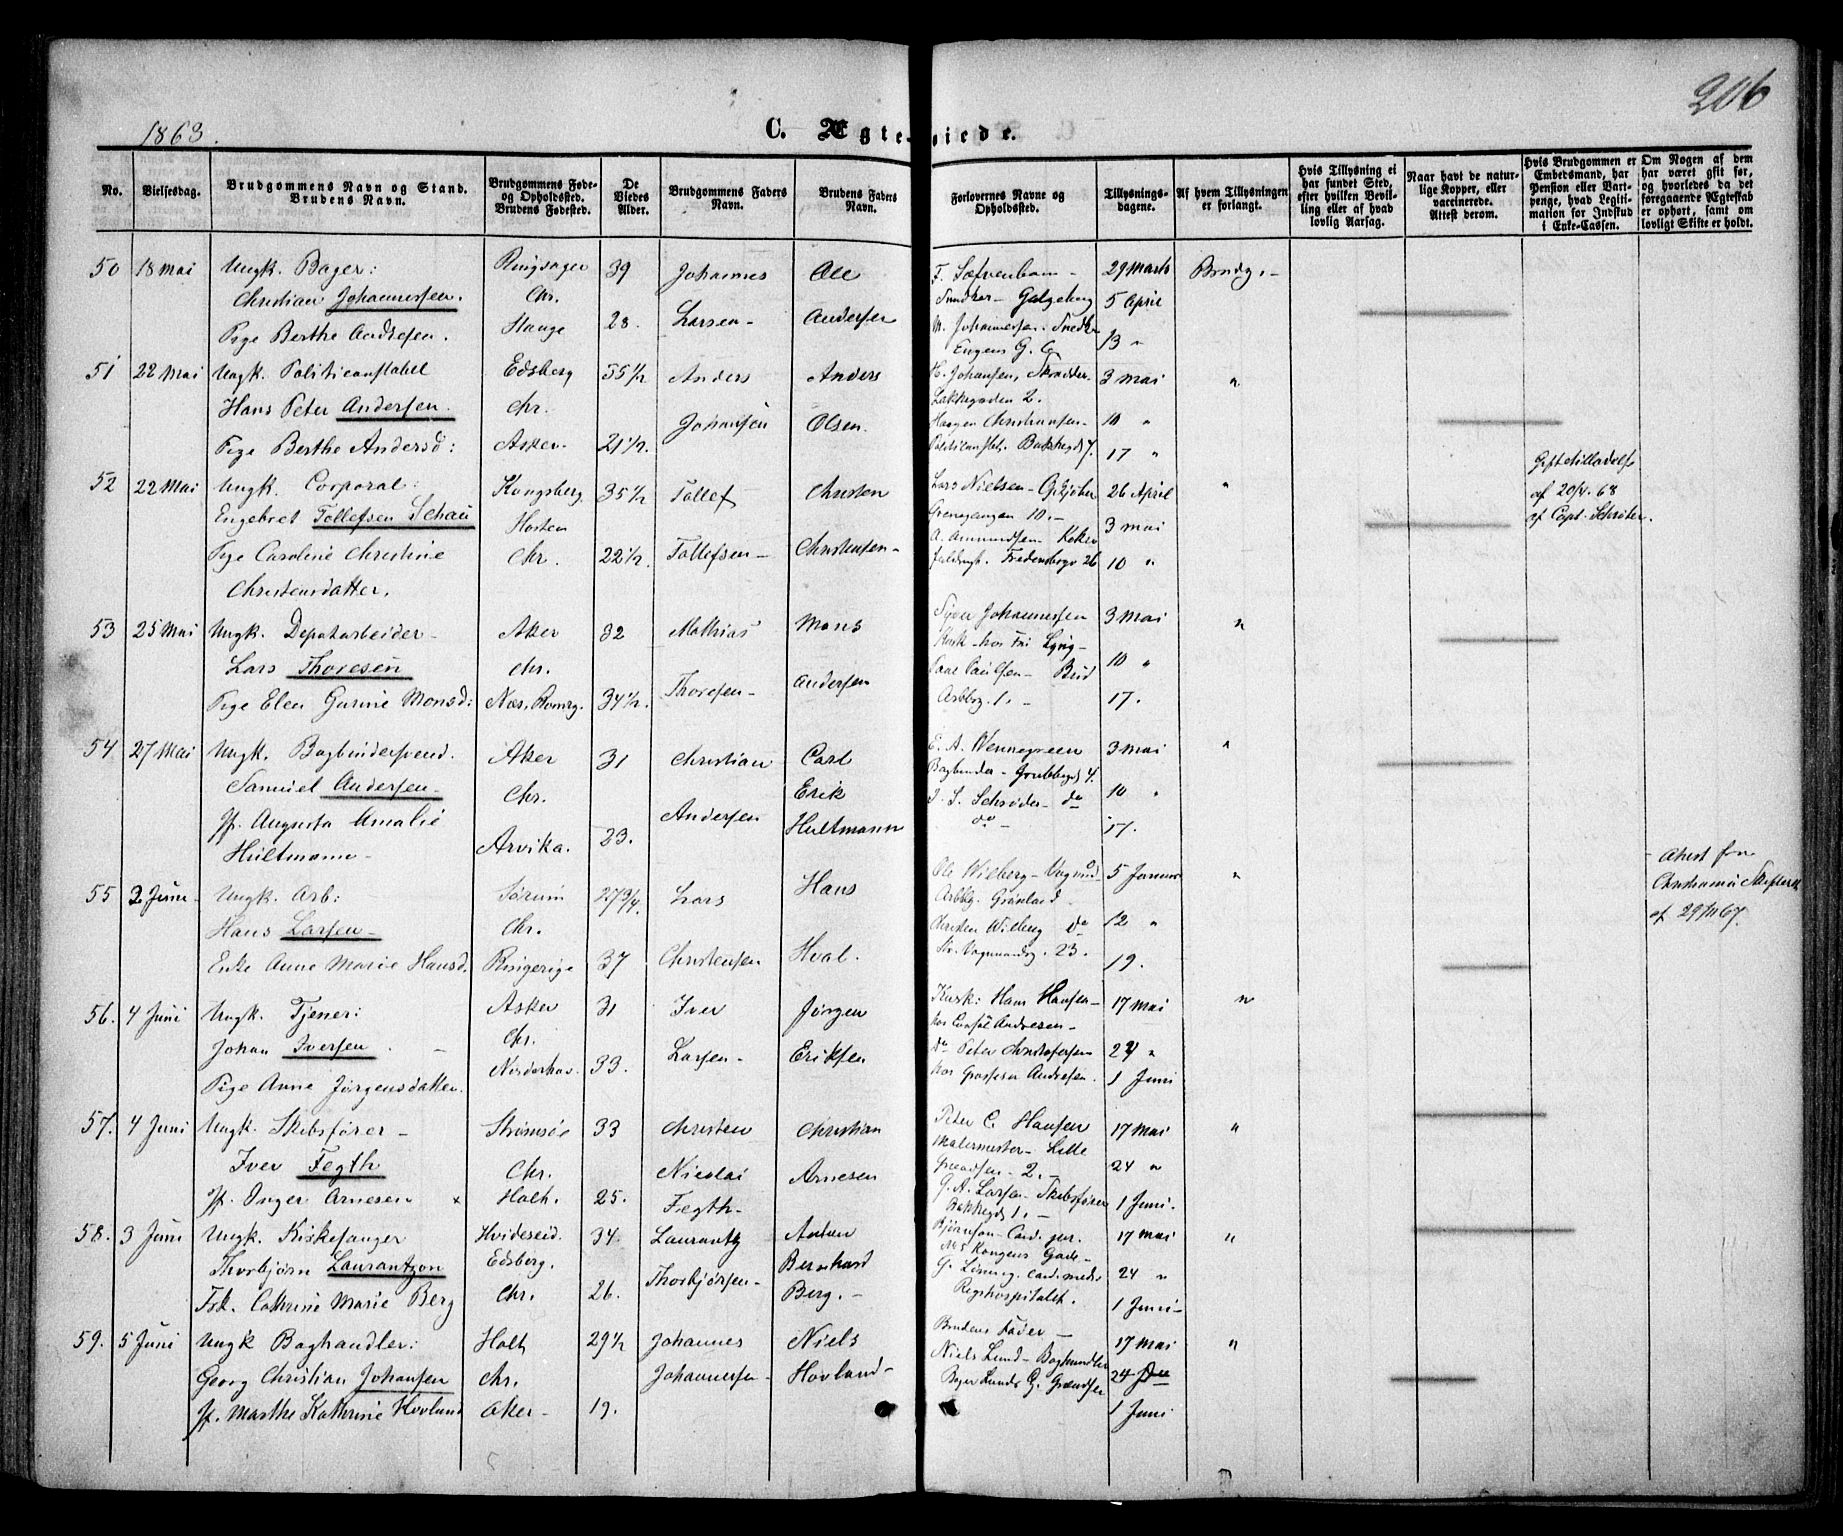 206
1863.
C. Ægteviede.
No.
Vielsesdag.
Brudgommens Navn og Stand.
Brudens Navn.
Brudgommens Føde-
og Opholdssted.
Brudens Fødested.
De
Viedes
Alder.
Brudgommens Faders
Navn.
Brudens Faders
Navn.
Forlovernes Navne og
Opholdssted.
Tillysnings-
dagene.
Af hvem Tillysningen
er forlangt.
Hvis Tillysning ei
har fundet Sted,
efter hvilken Bevil-
ling eller af hvad
lovlig Aarsag.
Naar havt de natur-
lige Kopper, eller
vaccinerede.
Attest derom.
Hvis Brudgommen er
Embedsmand, har
Pension eller Vart-
penge, hvad Legiti-
mation for Indskud
i Enke-Cassen.
Om Nogen af dem
har været gift før,
og hvorledes da det
foregaaende Ægteskab
er ophørt, samt om
lovligt Skifte er holdt.
50 18 Mai Ungk. Bager: Ringsager 39 Johannes Ole 29 Marts Brudg.-
Christian Johannessen. Chr. 5 April
Pige Berthe Andresen. Stange 28. Larsen- Andersen 13 "
51 22 Mai Ungk. Politiconstabel Edsberg 35 1/2 Anders Anders H. Johansen, Skrædder. 3 Mai "
Hans Peter Andersen. Chr. Johansen Olsen. Lakkegaden 2. 10 "
Pige Berthe Andersd: Asker. 21 1/2. 17 "
52 22 Mai Ungk. Corporal: Kongsberg 35 1/2 Tollef Christen Lars Nielsen 26 April " Giftetilladelse
Engebret Tollefsen Schau Grønegangen 10.- 3 Mai af 20/4. 68
Pige Caroline Christine Chr. 22 1/2. Tollefsen- Christensen- A. Amundsen 10 " af Capt. Schrøter.
Christensdatter. Fredensborgv 26
53 25 Mai Ungk. Depotarbeider- Aker 32 Mathias Mons Syver Johannessen 3 Mai "
Lars Thoresen Chr. 10 "
Pige Elen Gurine Monsd: Næs, Romrg. 34 1/2. Thoresen- Andersen 17.
54 27 Mai Ungk. Bogbindersvend. Aker 31 Christian Carl E. A. Wennegreen 3 Mai "
Samuel Andersen- Chr. Erik Bogbinder- Grubbegd 4. 10 "
Jf. Augusta Amalie Arvika. 23. Andersen Hultmann Schrøder- do 17.
Hultmann-
55 2 Juni Ungk. Arb: Sørum 27 3/4. Lars Hans Ole Wiberg 5 Januar " - Attest fra
Hans Larsen- Chr. Arbbg. Grønland- 12 " Christiania Skifteret
Enke Anne Marie Hansd. Ringerige 37 Christensen Hval. Christen Wiberg do 19. af 29/11 67.
56. 4 Juni Ungk. Tjener: Asker 31 Iver Jørgen Kusk: Hans Hansen- 17 Mai "
Johan Iversen. Chr. hos Consul Andresen-
Pige Anne Jørgensdatter. Norderhov. 33. Larsen- Eriksen do Peter Christofersen 24 "
hos Grosserer Andresen. 1 Juni
57. 4 Juni Ungk. Skibsfører- Strømsøe 33 Christen Christian Peter C. Hansen 17 Mai "
Iver Fegth Chr. Nicolai Arnesen Malermester- Lille 24 "
Jf. Inger Arnesen x Holt. 25. Fegth- Grændsen- 2.- 1 Juni.
G. A. Larsen- Skibsfører
Bakkegd 1.-
58. 3 Juni Ungk. Kirkesanger Hvideseid. 34. Laurantz Anton 17 Mai "
Thorbjørn Laurantzon Edsberg. Bernhard No 5 Kongens Gade- 24 "
Frk. Cathrine Marie Berg Chr. 26. Thorbjørsen- Berg.- Rigshospitalet. 1 Juni-
59. 5 Juni Ungk Boghandler: Holt 29 1/2 Johannes Niels Brudens Fader- 17 Mai "
Georg Christian Johansen Chr. Johannesen- Hovland- Niels Lund- Boghandler 24 Do
Jf. Marthe Kathrine Hovland Aker- 19. 1 Juni